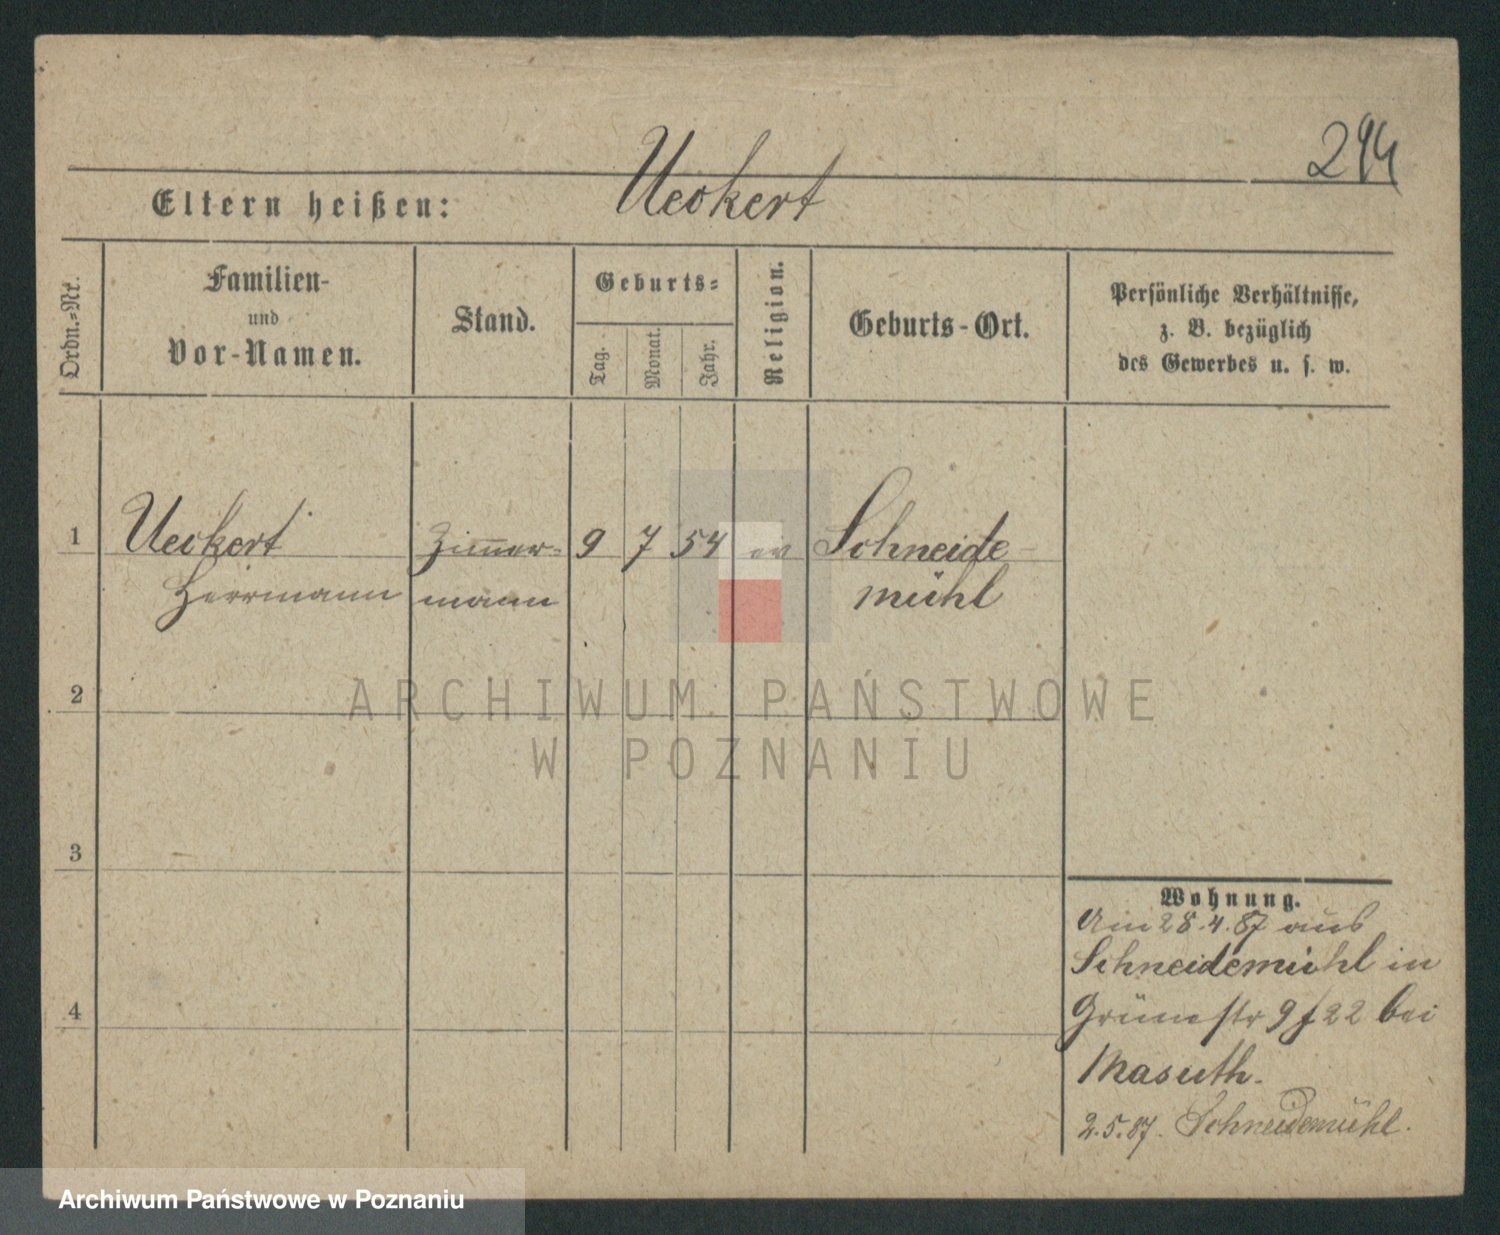 294
Eltern heißen: Ueckert
Ordn.-Nr.
Familien-
und
Vor-Namen.
Stand.
Geburts-
Tag.
Monat.
Jahr.
Religion.
Geburts-Ort.
Persönliche Verhältnisse,
z. B. bezüglich
des Gewerbes u. s. w.
1 Ueckert Zimmer- 9 7 54 ev Schneide-
Herrmann mann mühl
2
3
4
Wohnung.
Am 28.4.87 aus
Schneidemühl in
Grünestr 9 f 22 bei
Masuth.
2.5.87. Schneidemühl.
ARCHIWUM PAŃSTWOWE
W POZNANIU
Archiwum Państwowe w Poznaniu